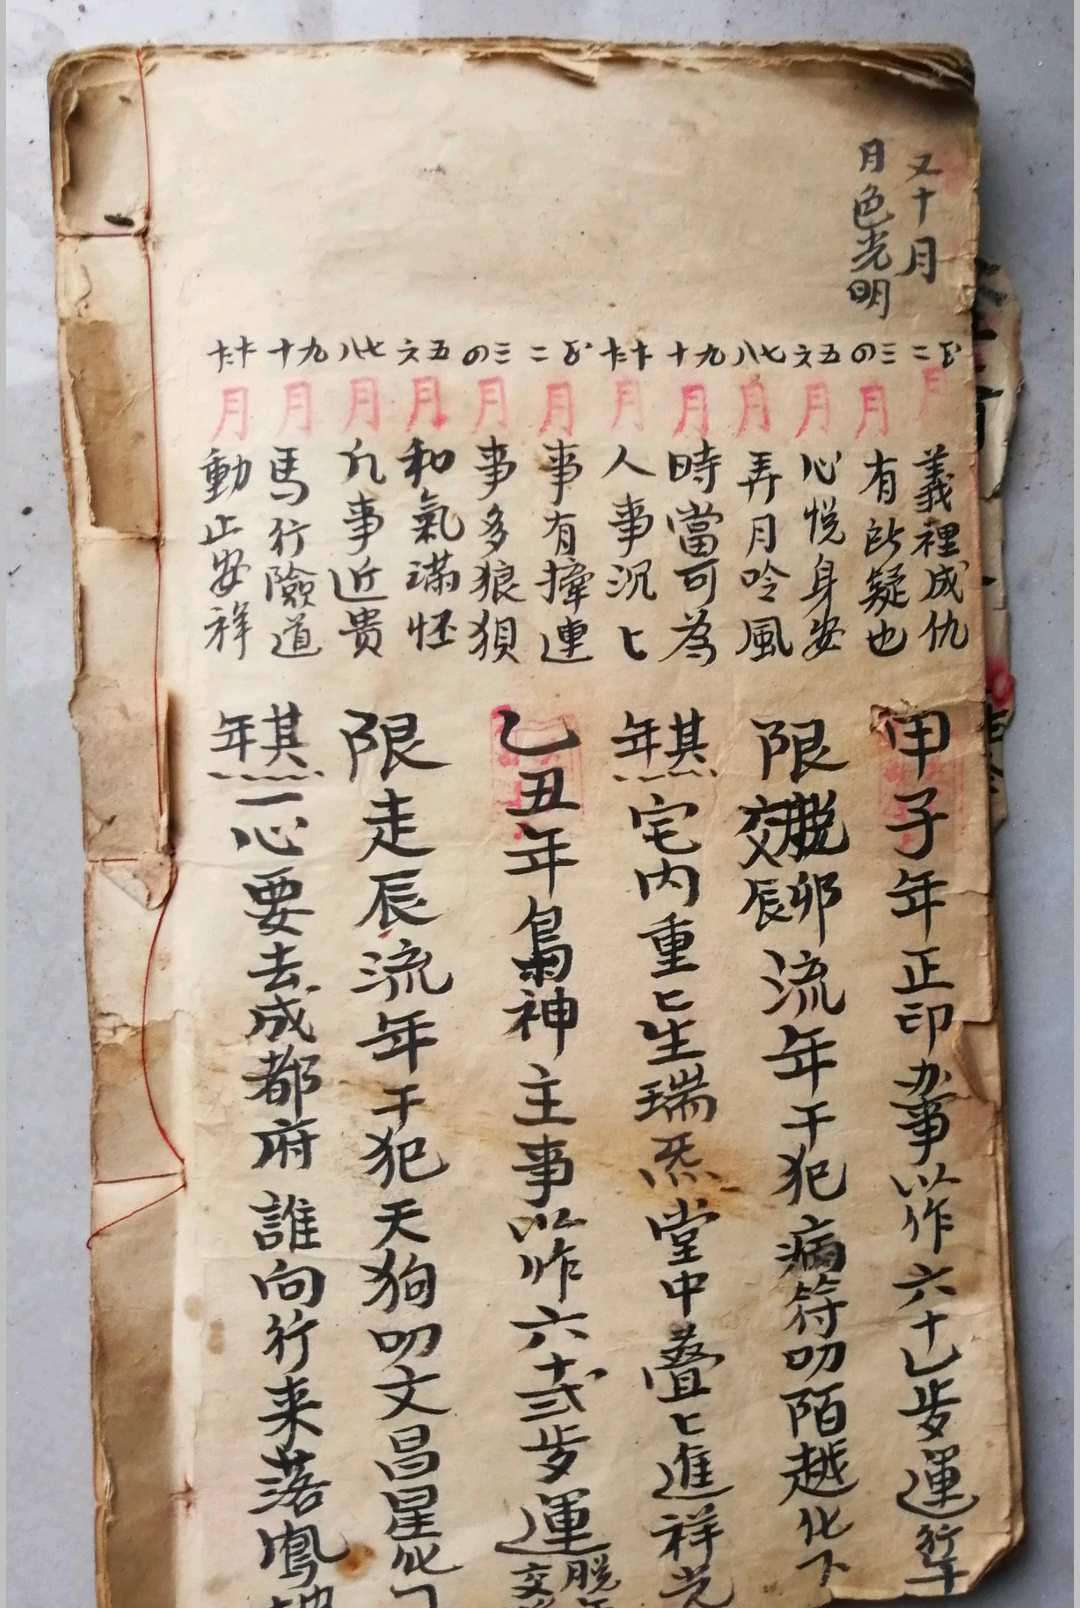 又十月
月色光明
正二月義裡成仇
三四月有所疑也
五六月心悦身安
七八月弄月吟風
九十月時當可為
十十二月人事沉匕
正二月事有撁連
三四月事多狼狽
五六月和氣滿怀
七八月凡事近贵
九十月馬行險道
十十二月動止安祥
甲子年正印办事以作六十乚步運行年
限脱卯交辰流年干犯病符叨陌越化下
其年宅内重匕生瑞炁堂中叠匕進祥光
乙丑年梟神主事以作六十弍步運脱交
限走辰流年干犯天狗叨文昌星化
其年一心要去成都府誰向行来落鳳坡